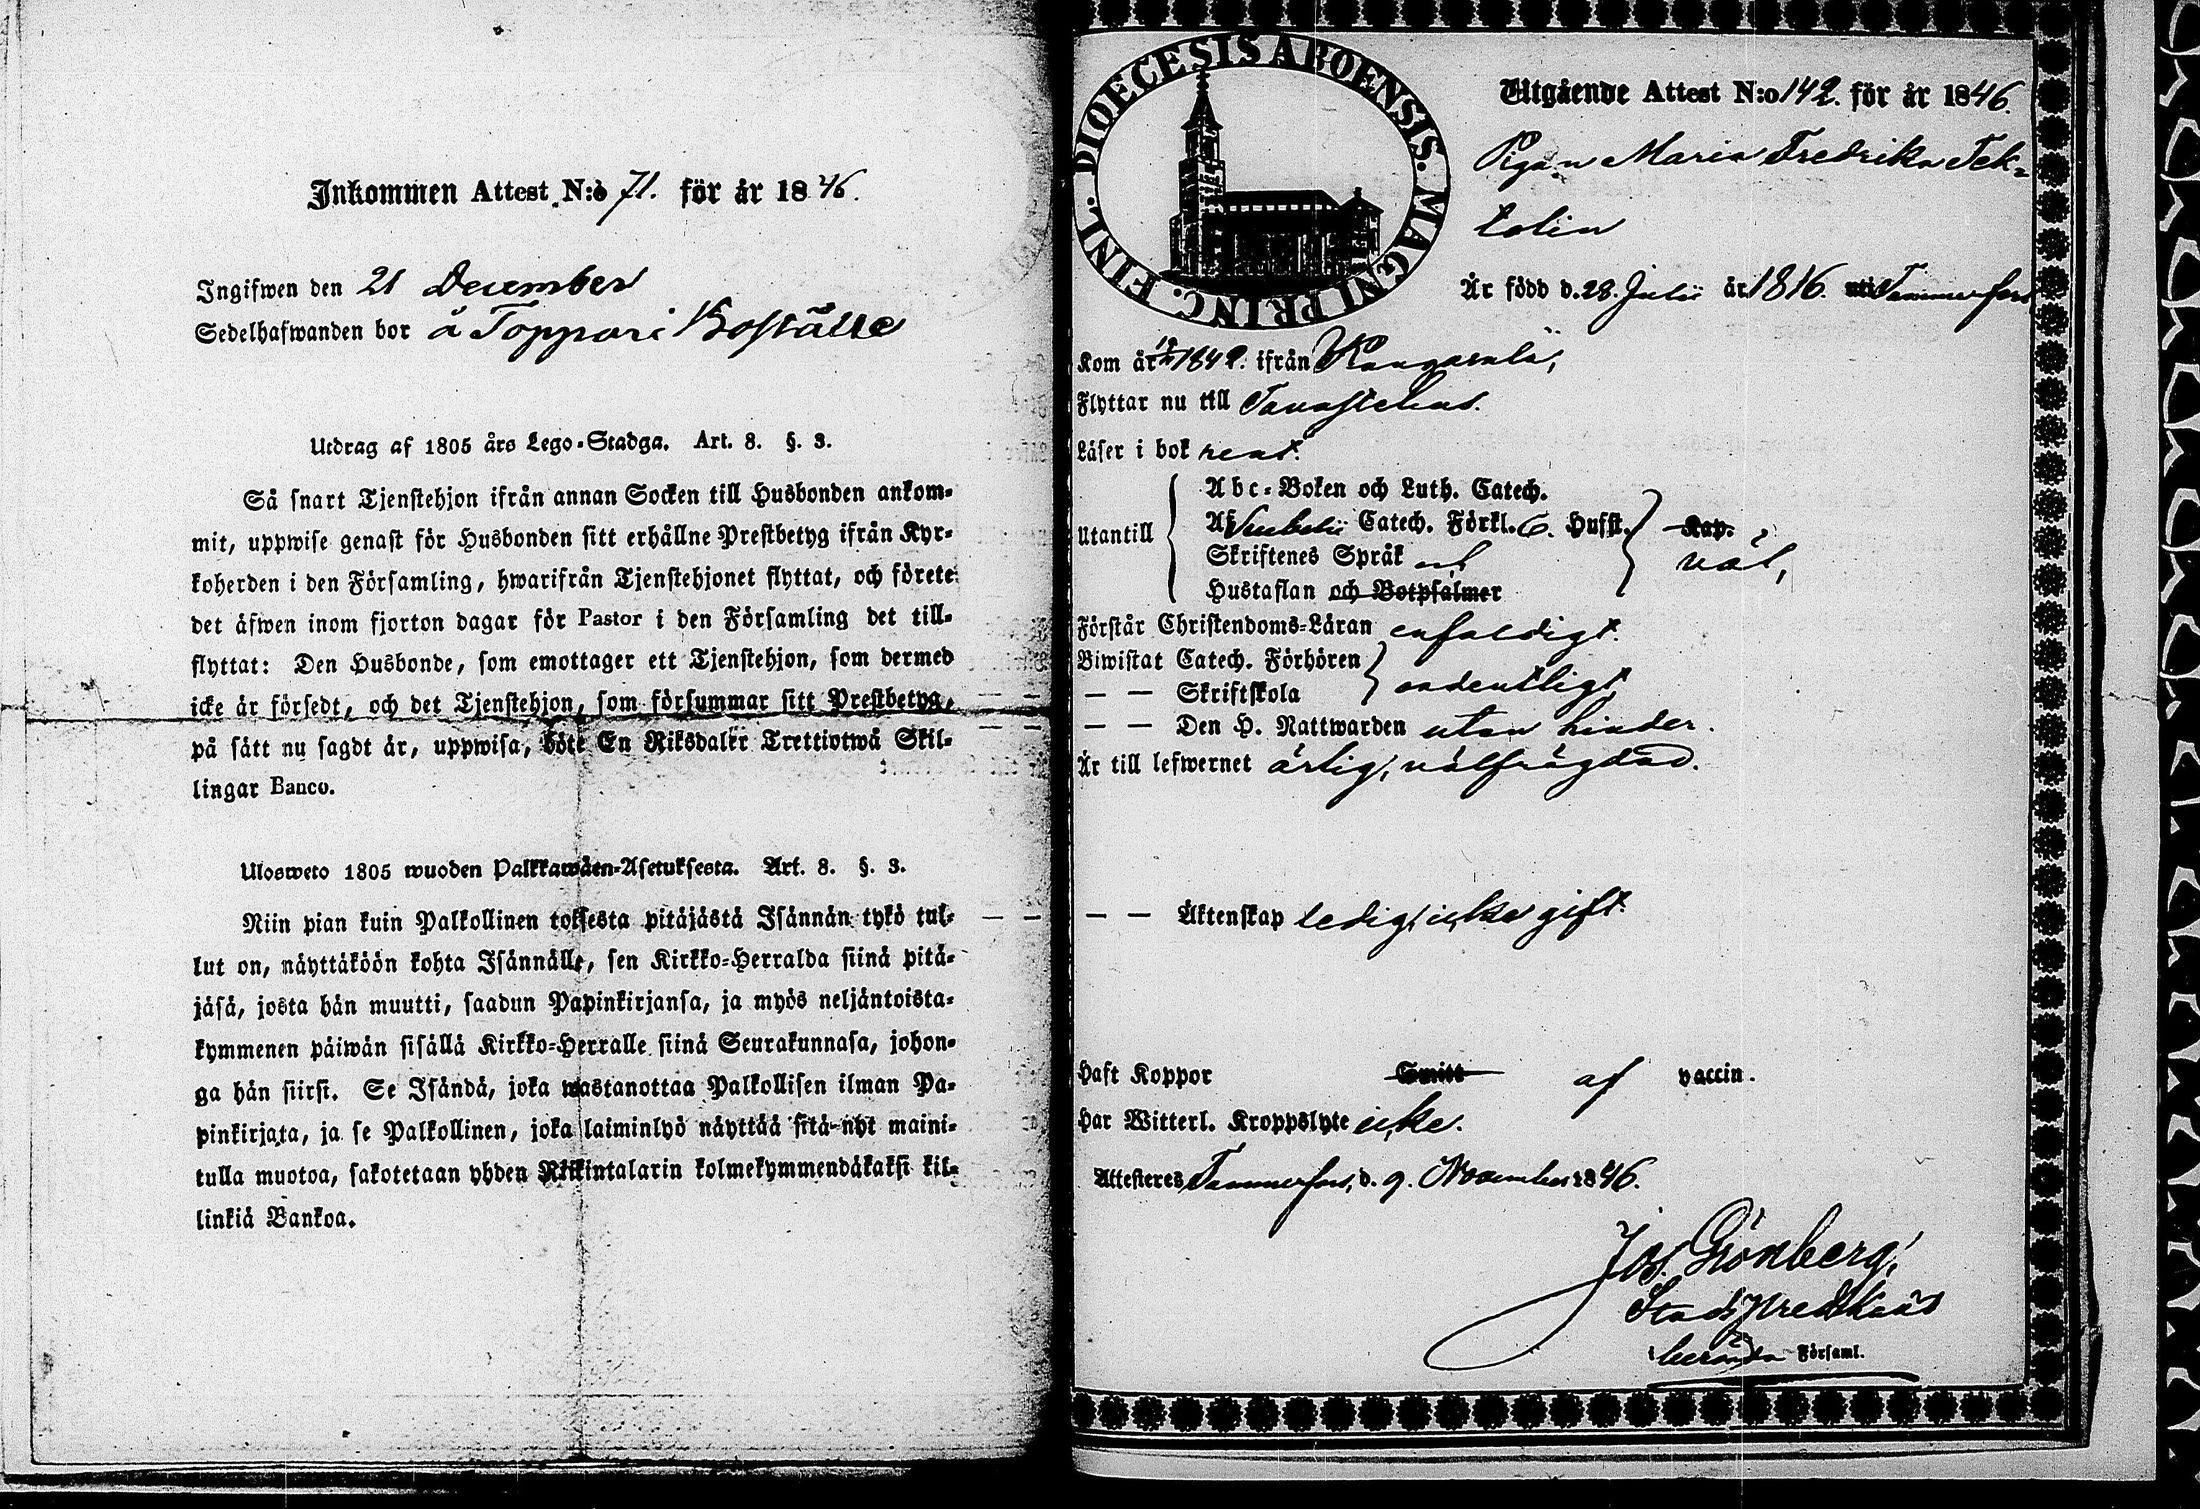 Inkommen Attest N:o 71. för år 1846.
Ingifwen den 21 December
Sedelhafwanden bor å Toppari Boställe
Utdrag af 1805 års Lego-Stadga. Art. 8. §. 3.
Så snart Tjenstehjon ifrån annan Socken till Husbonden ankom-
mit, uppwise genast för Husbonden sitt erhållne Prestbetyg ifrån Kyr-
koherden i den Församling, hwarifrån Tjenstehjonet flyttat, och förete
det äfwen inom fjorton dagar för Pastor i den Församling det till-
flyttat: Den Husbonde, som emottager ett Tjenstehjon, som dermed
icke är försedt, och det Tjenstehjon, som försummar sitt Prestbetyg,
på sätt nu sagdt är, uppwisa, böte En Riksdaler Trettiotwå Skil-
lingar Banco.
Ulosweto 1805 wuoden Palkkawäen-Asetuksesta. Art. 8. §. 3.
Niin pian kuin Palkollinen toisesta pitäjästä Isännän tykö tul-
lut on, näyttäköön kohta Isännälle, sen Kirkko-Herralda siinä pitä-
jäsä, josta hän muutti, saadun Papinkirjansa, ja myös neljäntoista-
kymmenen päiwän sisällä Kirkko-Herralle siinä Seurakunnasa, johon-
ga hän siirsi. Se Isändä, joka wastanottaa Palkollisen ilman Pa-
pinkirjata, ja se Palkollinen, joka laiminlyö näyttää sitä nyt maini-
tulla muotoa, sakotetaan yhden Riikintalarin kolmekymmendäkaksi kil-
linkiä Bankoa.
DIOECESIS ABOENSIS. MAGNI PRINC. FINL.
Utgående Attest N:o 142. för år 1846.
Pigan Maria Fredrika Tek-
tolin
Är född d. 28. Julii år 1816. uti Tammerfors
Kom år 1842. ifrån Kangasala,
Flyttar nu till Tavastehus.
Läser i bok rent.
Utantill
Abc-Boken och Luth. Catech.
Af Catech. Förkl. C. Husst.
Skriftenes Språk och
Hustaflan och Botpsalmer
Kap.
väl,
Förstår Christendoms-Läran enfaldigt.
Biwistat Catech. Förhören
— — Skriftskola ordentligt
— — Den H. Nattwarden utan hinder.
Är till lefwernet ärlig, välfrägdad.
— — Äktenskap ledig, icke gift.
Haft Koppor Smitt af vaccin.
Har Witterl. Kroppslyte icke.
Attesteres Tammerfors, d. 9. November 1846.
Jos. Grönberg,
Stadspredikant
i berörda Församl.